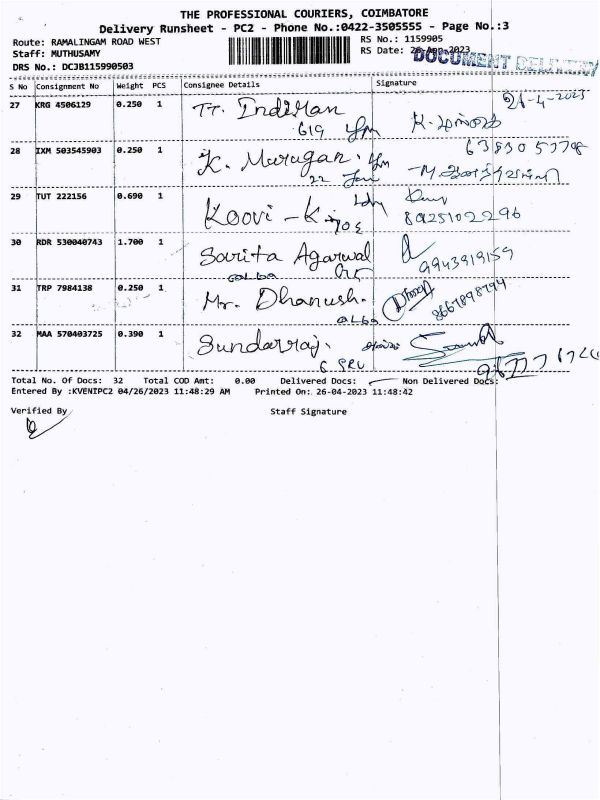 THE PROFESSIONAL COURIERS, COIMBATORE
Delivery Runsheet - PC2 - Phone No.:0422-3505555 - Page No.:3
Route: RAMALINGAM ROAD WEST
RS No.: 1159905
Staff: MUTHUSAMY
RS Date: 26-Apr-2023
DOCUMENT DELIVERY
DRS No.: DCJB115990503
S No Consignment No Weight PCS Consignee Details Signature
27 KRG 4506129 0.250 1
619
28 IXM 503545903 0.250 1 K. Murugan.
22
29 TUT 222156 0.690 1 Koovi - K.
8925102296
30 RDR 530040743 1.700 1 Sarita Agarwal
9943919159
31 TRP 7984138 0.250 1 Mr. Dhanush.
8667898794
32 MAA 570403725 0.390 1 Sundarraj.
Total No. Of Docs: 32 Total COD Amt: 0.00 Delivered Docs: Non Delivered Docs:
Entered By :KVENIPC2 04/26/2023 11:48:29 AM Printed On: 26-04-2023 11:48:42
Verified By Staff Signature